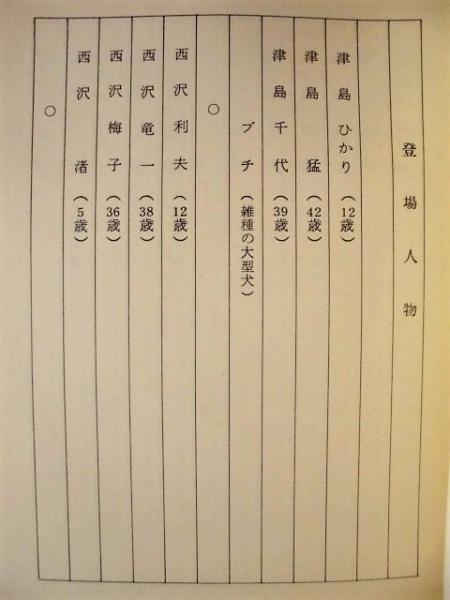 登場人物
津島ひかり（12歳）
津島　猛（42歳）
津島千代（39歳）
ブチ（雑種の大型犬）
○
西沢利夫（12歳）
西沢竜一（38歳）
西沢梅子（36歳）
西沢　渚（5歳）
○